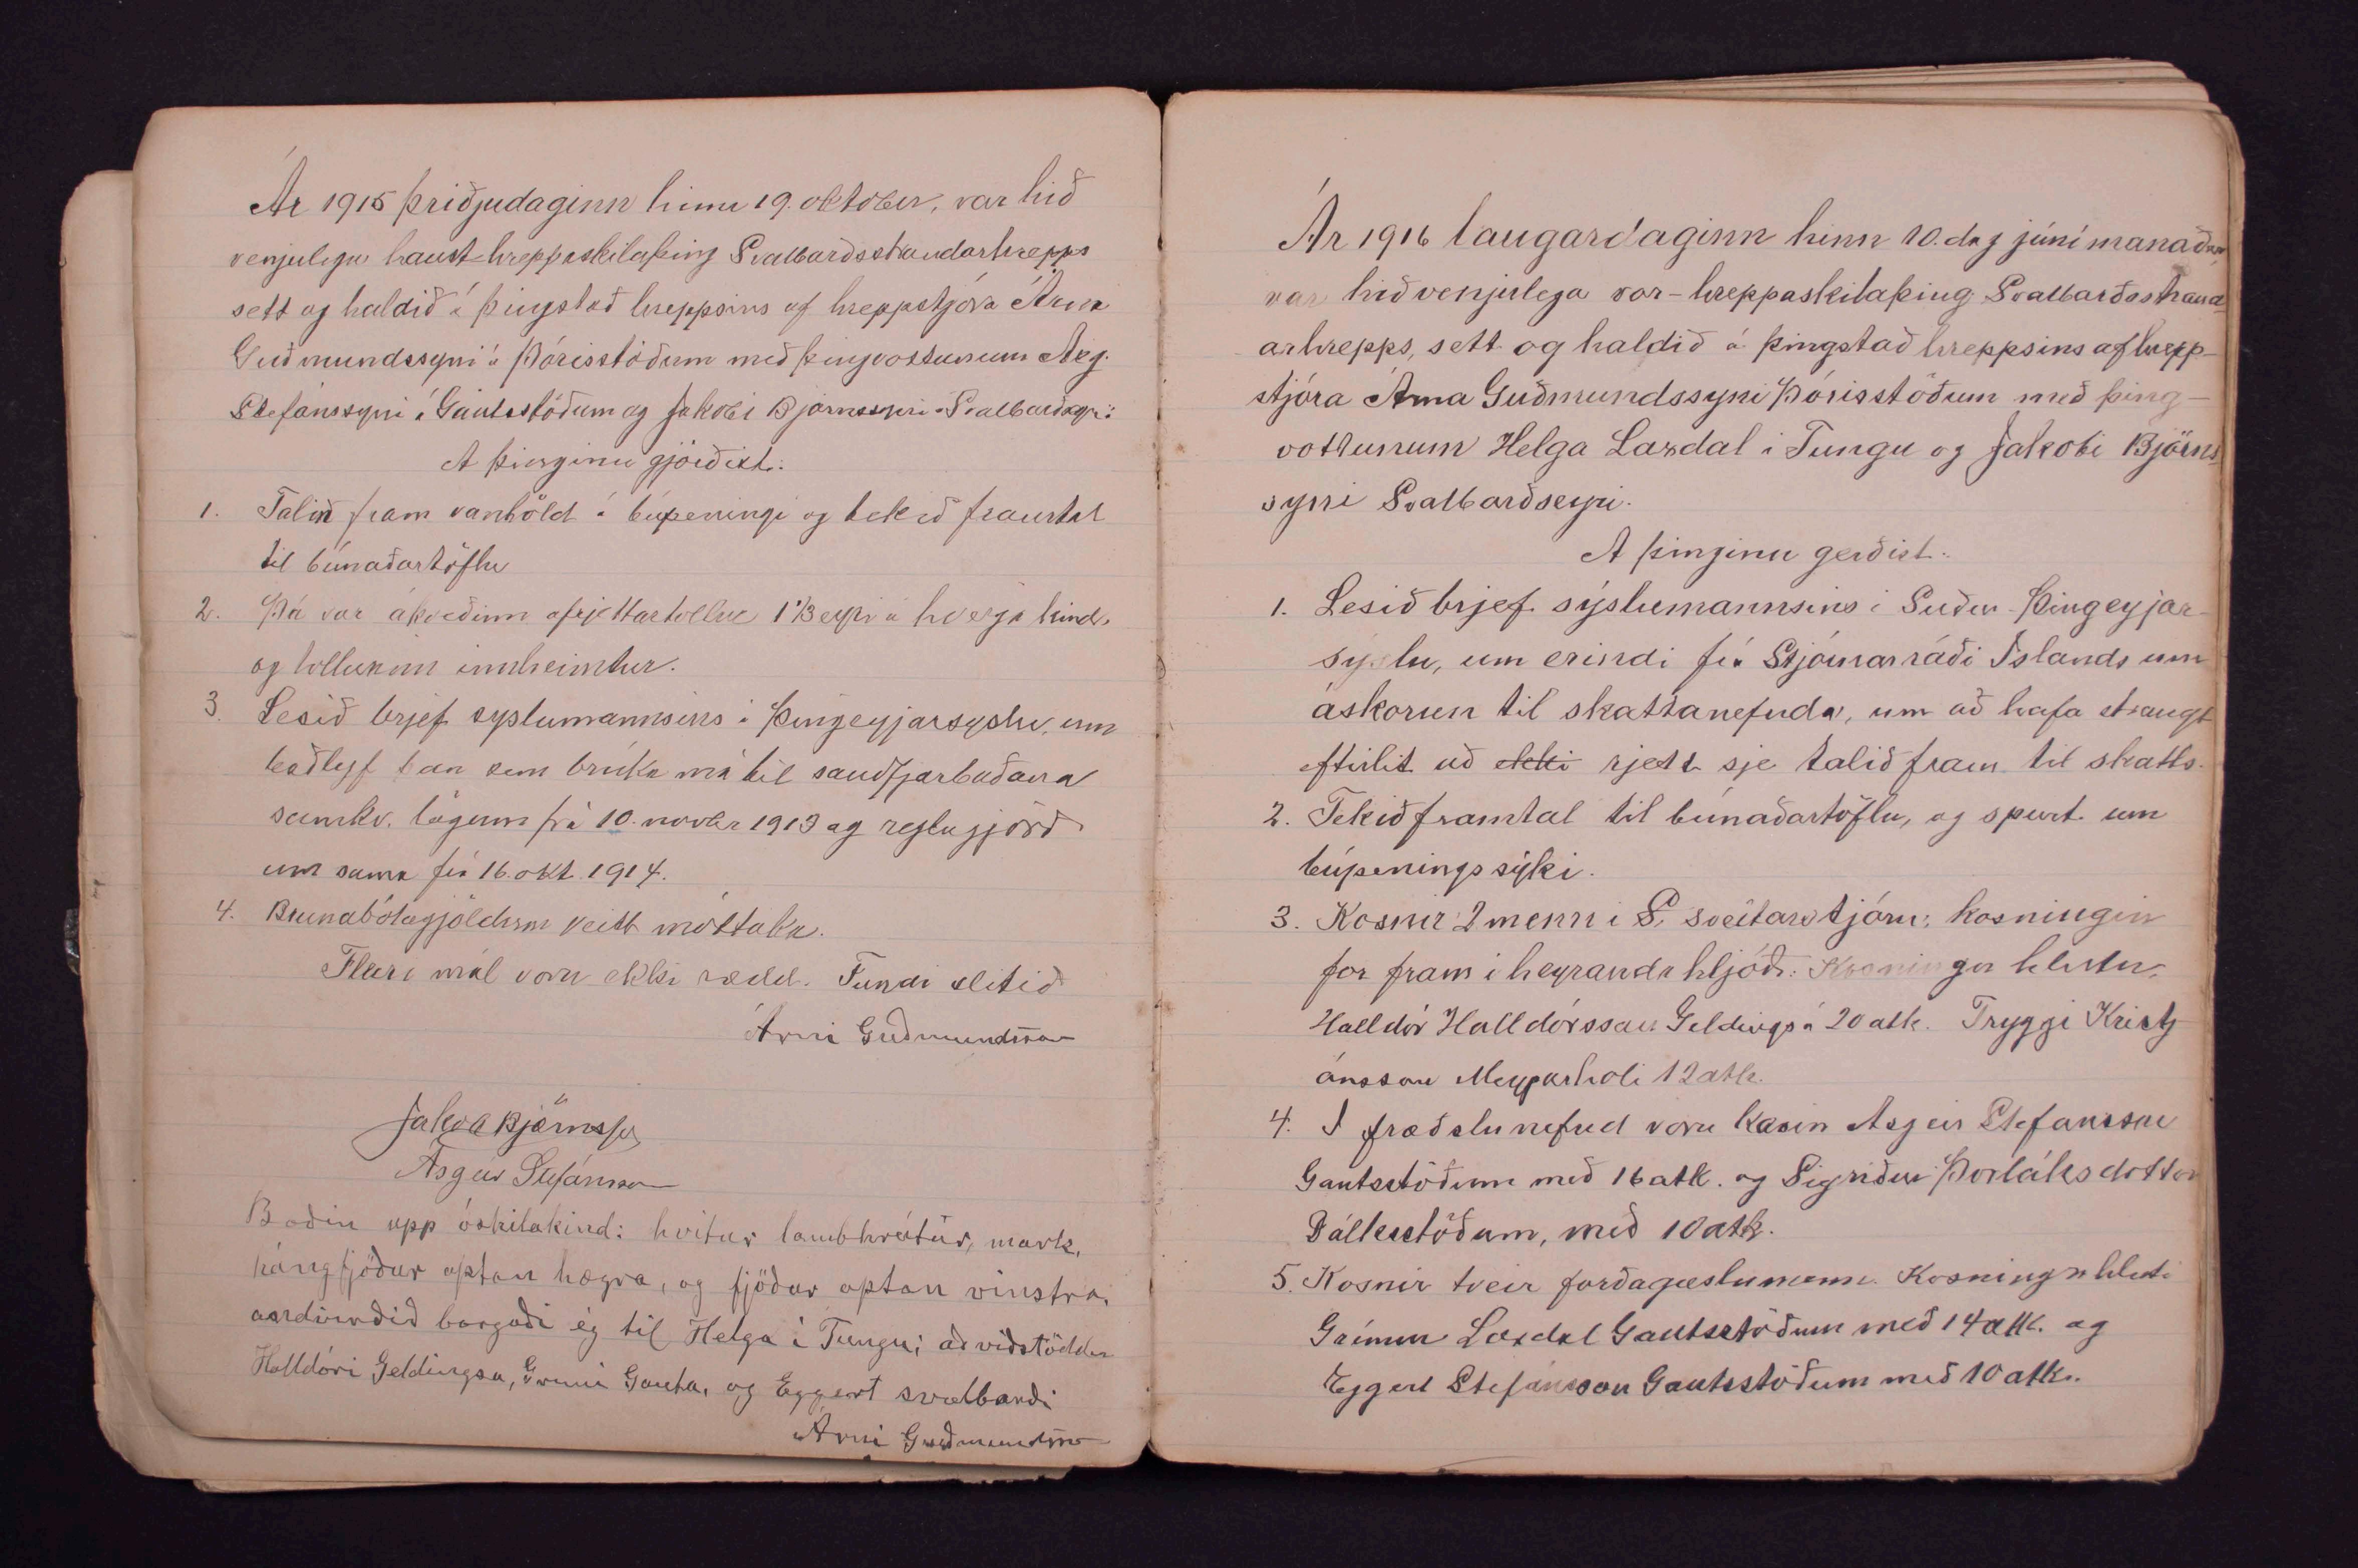 Ár 1915 þriðjudaginn hinn 19. október, var hið
venjulega haust-hreppaskilaþing Svalbarðsstrandarhrepps
sett og haldið á þingstað hreppsins af hreppstjóra Árna
Guðmundssyni á Þórisstöðum með þingvottunum Ásg.
Stefánssyni á Gautsstöðum og Jakobi Björnssyni Svalbarðseyri:
Á þinginu gjörðist:
1. Talin fram vanhöld á búpeningi og tekið framtal
til búnaðartöflu
2. Þá var ákveðinn afrjettartollur eyri á hverja kind,
og tollurinn innheimtur.
3. Lesið brjef syslumannsins i Þingeyjarsyslu, um
baðlyf þau sem brúka má til sauðfjárbaðana
samkv. lögum frá 10. novbr 1913 og reglugjörð
um sama frá 16. okt. 1914.
4. Brunabótagjöldum veitt móttaka.
Fleiri mál voru ekki rædd. Fundi slitið
Árni Guðmundsson
Jakob Björnsson
Ásgeir Stefánsson
Boðin upp óskilakind: hvítur lambhrútur, mark,
hángfjöður aptan hægra, og fjöður aptan vinstra.
andvirðið borgaði ég til Helga í Tungu; að viðstöddu
Halldóri Geldingsá, Grími Gauta, og Eggert svalbarði
Árni Guðmundsson
Ár 1916 laugardaginn hinn 10. dag júnímánaðar,
var hið venjulega vor-hreppaskilaþing Svalbarðsstrand-
arhrepps, sett og haldið á þingstað hreppsins af hrepp-
stjóra Árna Guðmundssyni Þórisstöðum með þing-
vottunum Helga Laxdal i Tungu og Jakobi Björns
syni Svalbarðseyri.
Á þinginu gerðist:
1. Lesið brjef sýslumannsins i Suður-Þingeyjar-
sýslu, um erindi frá Stjórnarráði Íslands um
áskorun til skattanefnda, um að hafa strangt
eftirlit að ekki rjett sje talið fram til skatts.
2. Tekið framtal til búnaðartöflu, og spurt um
búpeningssýki.
3. Kosnir 2 menn i sveitarstjórn; kosningin
fór fram i heyranda hljóði. Kosningu hlutu,
Halldór Halldórsson Geldingsá 20 atk. Tryggi Kristj
ánsson Meyjarhóli 12 atk.
4. Í fræðslunefnd voru kosin Ásgeir Stefánsson
Gautsstöðum með 16 atk. og Sigríður Þorláksdottir
Dálksstöðum, með 10 atk.
5. Kosnir tveir forðagæslumenn. Kosningu hluti
Grímur Laxdal Gautsstöðum með 14 atk. og
Eggert Stefánsson Gautsstöðum með 10 atk.